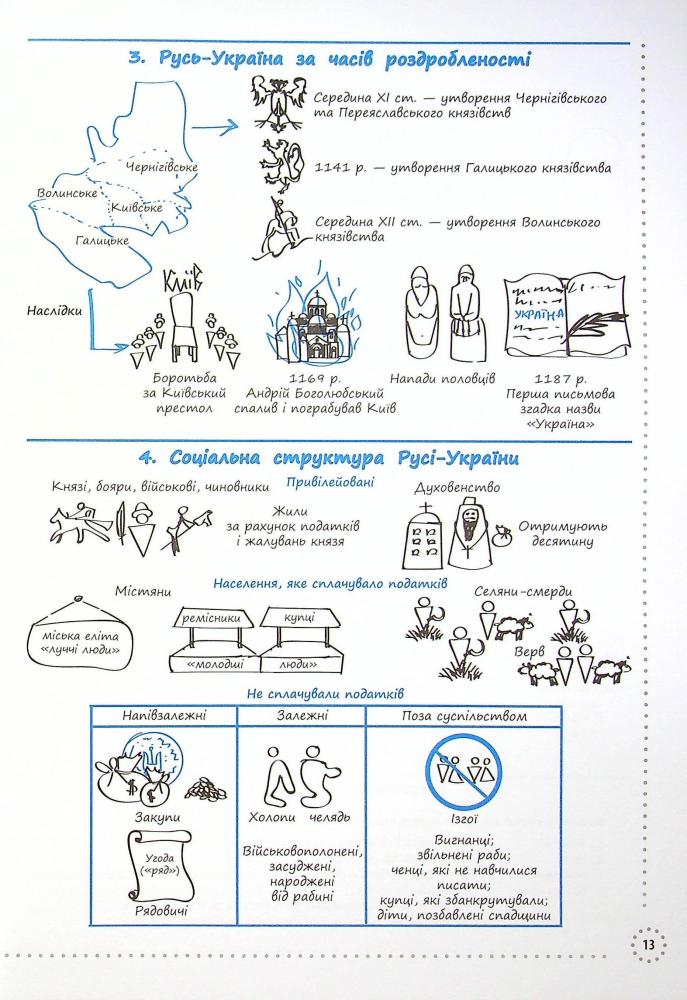 3. Русь-Україна за часів роздробленості
Середина XI ст. — утворення Чернігівського
та Переяславського князівств
1141 р. — утворення Галицького князівства
Середина XII ст. — утворення Волинського
князівства
Чернігівське
Волинське
Київське
Галицьке
Наслідки
Київ
Боротьба
за Київський
престол
1169 р.
Андрій Боголюбський
спалив і пограбував Київ
Напади половців
УКРАЇНА
1187 р.
Перша письмова
згадка назви
«Україна»
4. Соціальна структура Русі-України
Привілейовані
Князі, бояри, військові, чиновники
Жили
за рахунок податків
і жалувань князя
Духовенство
Отримують
десятину
Населення, яке сплачувало податків
Містяни
міська еліта
«луччі люди»
ремісники
купці
«молодші
люди»
Селяни-смерди
Верв
Не сплачували податків
Напівзалежні
Залежні
Поза суспільством
$
$
Закупи
Угода
(«ряд»)
Рядовичі
Холопи челядь
Військовополонені,
засуджені,
народжені
від рабині
Ізгої
Вигнанці;
звільнені раби;
ченці, які не навчилися
писати;
купці, які збанкрутували;
діти, позбавлені спадщини
13